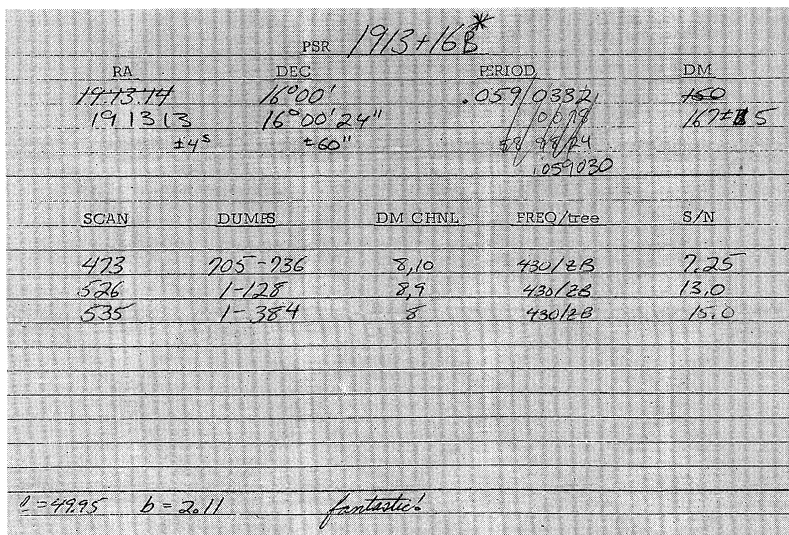 PSR 1913+16B*
RA DEC PERIOD DM
19.13.14 16°00' .059 0332 150
19 13 13 16°00'24" 167± 5
±4s ±60"
.059030
SCAN DUMPS DM CHNL FREQ/tree S/N
473 705-736 8,10 430/ZB 7.25
526 1-128 8,9 430/ZB 13.0
535 1-384 8 430/ZB 15.0
l=49.95 b=2.11 fantastic!